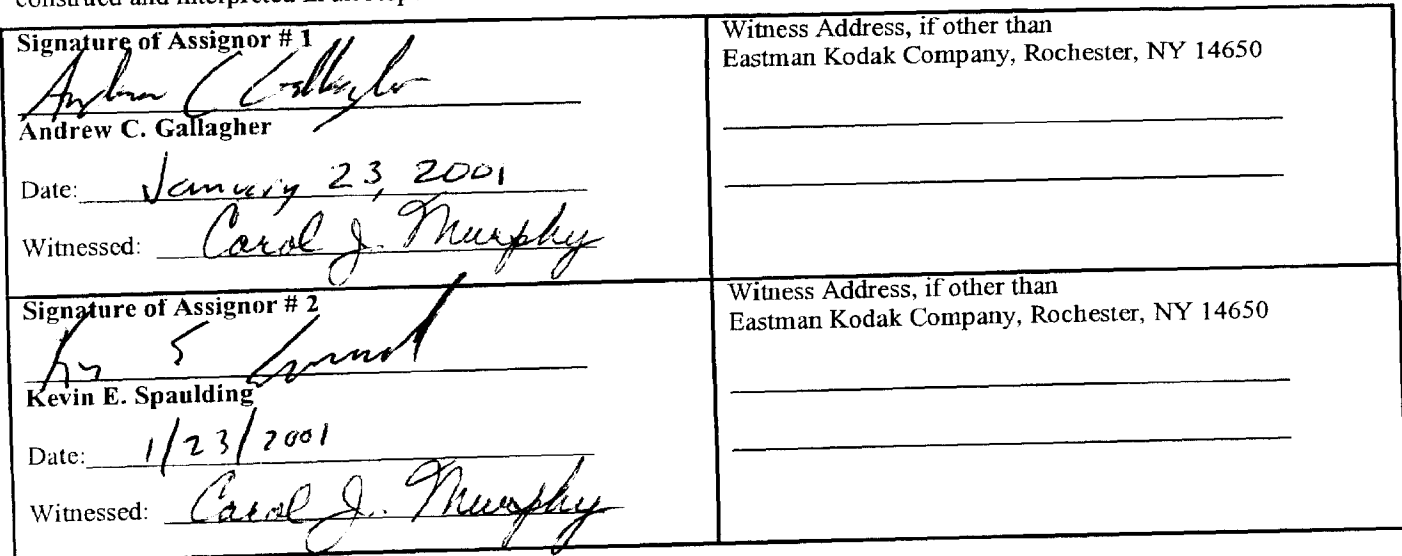 construed and interpreted in all resp
Signature of Assignor # 1
Andrew C Gallagher
Andrew C. Gallagher
Date: January 23, 2001
Witnessed: Carol J. Murphy
Witness Address, if other than
Eastman Kodak Company, Rochester, NY 14650
Signature of Assignor # 2
Kevin E. Spaulding
Date: 1/23/2001
Witnessed: Carol J. Murphy
Witness Address, if other than
Eastman Kodak Company, Rochester, NY 14650